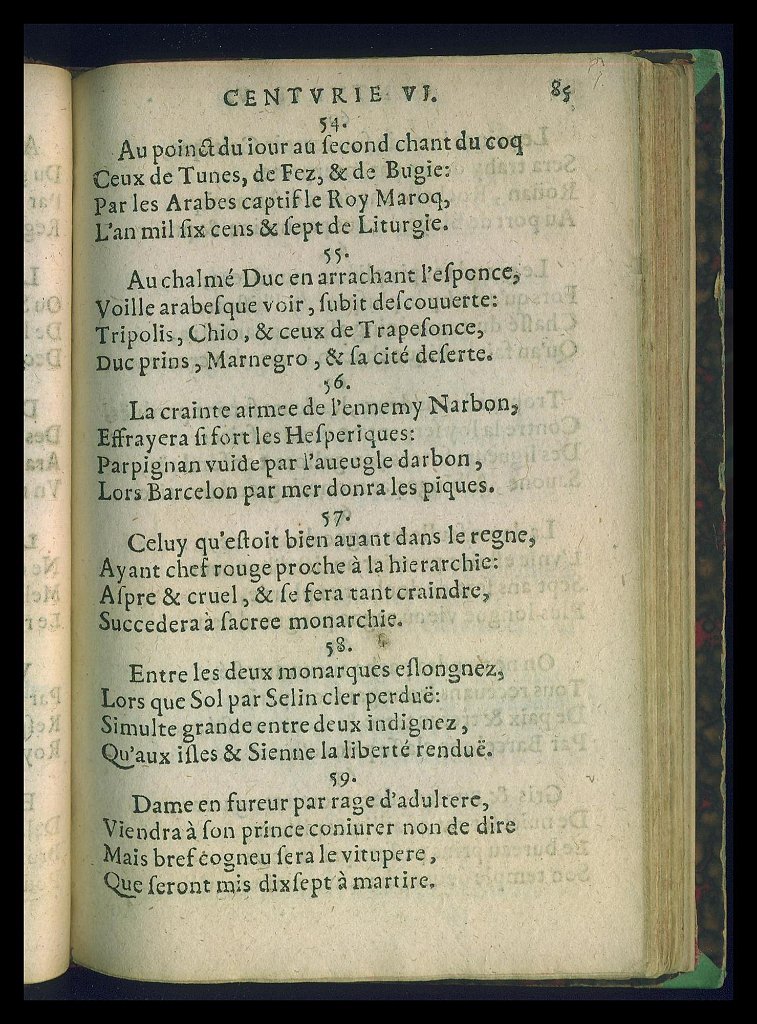 CENTVRIE VI. 85
54.
Au poinct du iour au ſecond chant du coq
Ceux de Tunes, de Fez, & de Bugie:
Par les Arabes captif le Roy Maroq,
L'an mil ſix cens & ſept de Liturgie.
55.
Au chalmé Duc en arrachant l'eſponce,
Voille arabeſque voir, ſubit deſcouuerte:
Tripolis, Chio, & ceux de Trapeſonce,
Duc prins, Marnegro, & ſa cité deſerte.
56.
La crainte armee de l'ennemy Narbon,
Effrayera ſi fort les Heſperiques:
Parpignan vuide par l'aueugle darbon,
Lors Barcelon par mer donra les piques.
57.
Celuy qu'eſtoit bien auant dans le regne,
Ayant chef rouge proche à la hierarchie:
Aſpre & cruel, & ſe fera tant craindre,
Succedera à ſacree monarchie.
58.
Entre les deux monarques eſlongnez,
Lors que Sol par Selin cler perduë:
Simulte grande entre deux indignez,
Qu'aux iſles & Sienne la liberté renduë.
59.
Dame en fureur par rage d'adultere,
Viendra à ſon prince coniurer non de dire
Mais bref cogneu ſera le vitupere,
Que ſeront mis dixſept à martire.